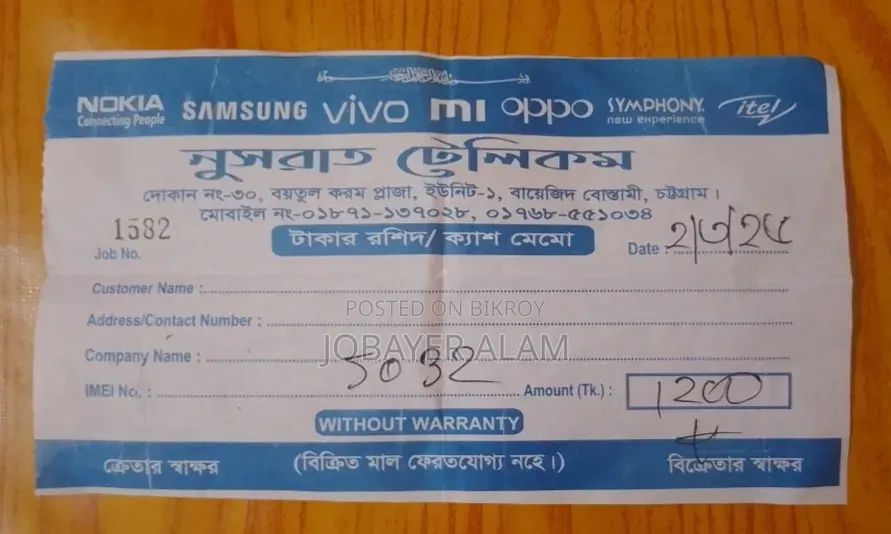 NOKIA Connecting People SAMSUNG vivo mi oppo SYMPHONY new experience itel
নুসরাত টেলিকম
দোকান নং-৩০, বয়তুল করম প্লাজা, ইউনিট-১, বায়েজিদ বোস্তামী, চট্টগ্রাম।
মোবাইল নং-০১৮৭১-১৩৭০২৮, ০১৭৬৮-৫৫১০৩৪
1582
Job No.
টাকার রশিদ/ ক্যাশ মেমো
Date : ২/৩/২৫
Customer Name :
POSTED ON BIKROY
Address/Contact Number :
JOBAYER ALAM
Company Name :
5032
IMEI No. :
Amount (Tk.) : 1200
WITHOUT WARRANTY
ক্রেতার স্বাক্ষর (বিক্রিত মাল ফেরতযোগ্য নহে।) বিক্রেতার স্বাক্ষর